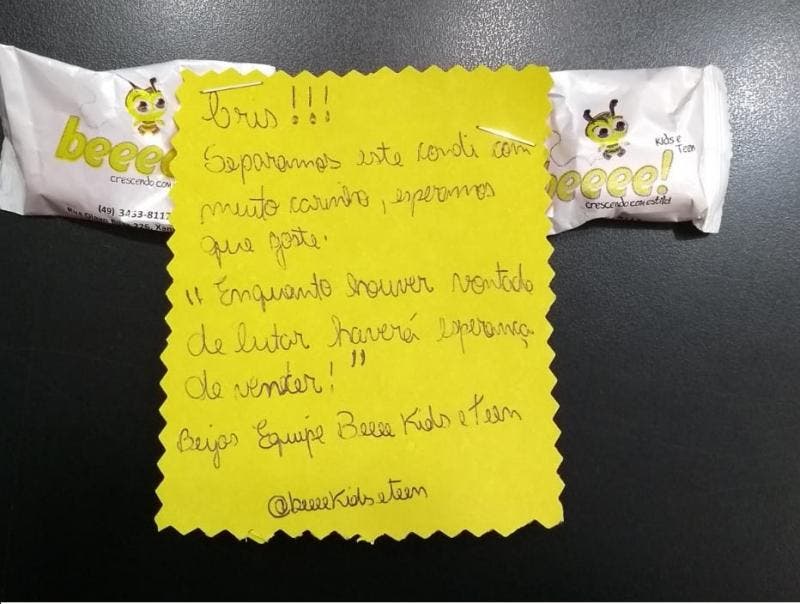 Cris!!!
Separamos este condi com
muito carinho, esperamos
que goste.
"Enquanto houver vontade
de lutar haverá esperança
de vencer!"
Beijos Equipe Beeee Kids e Teen
@beeeekidseteen
beeee
crescendo com
(49) 3433-8117
Kids e
Teen
eeee!
crescendo com estilo!